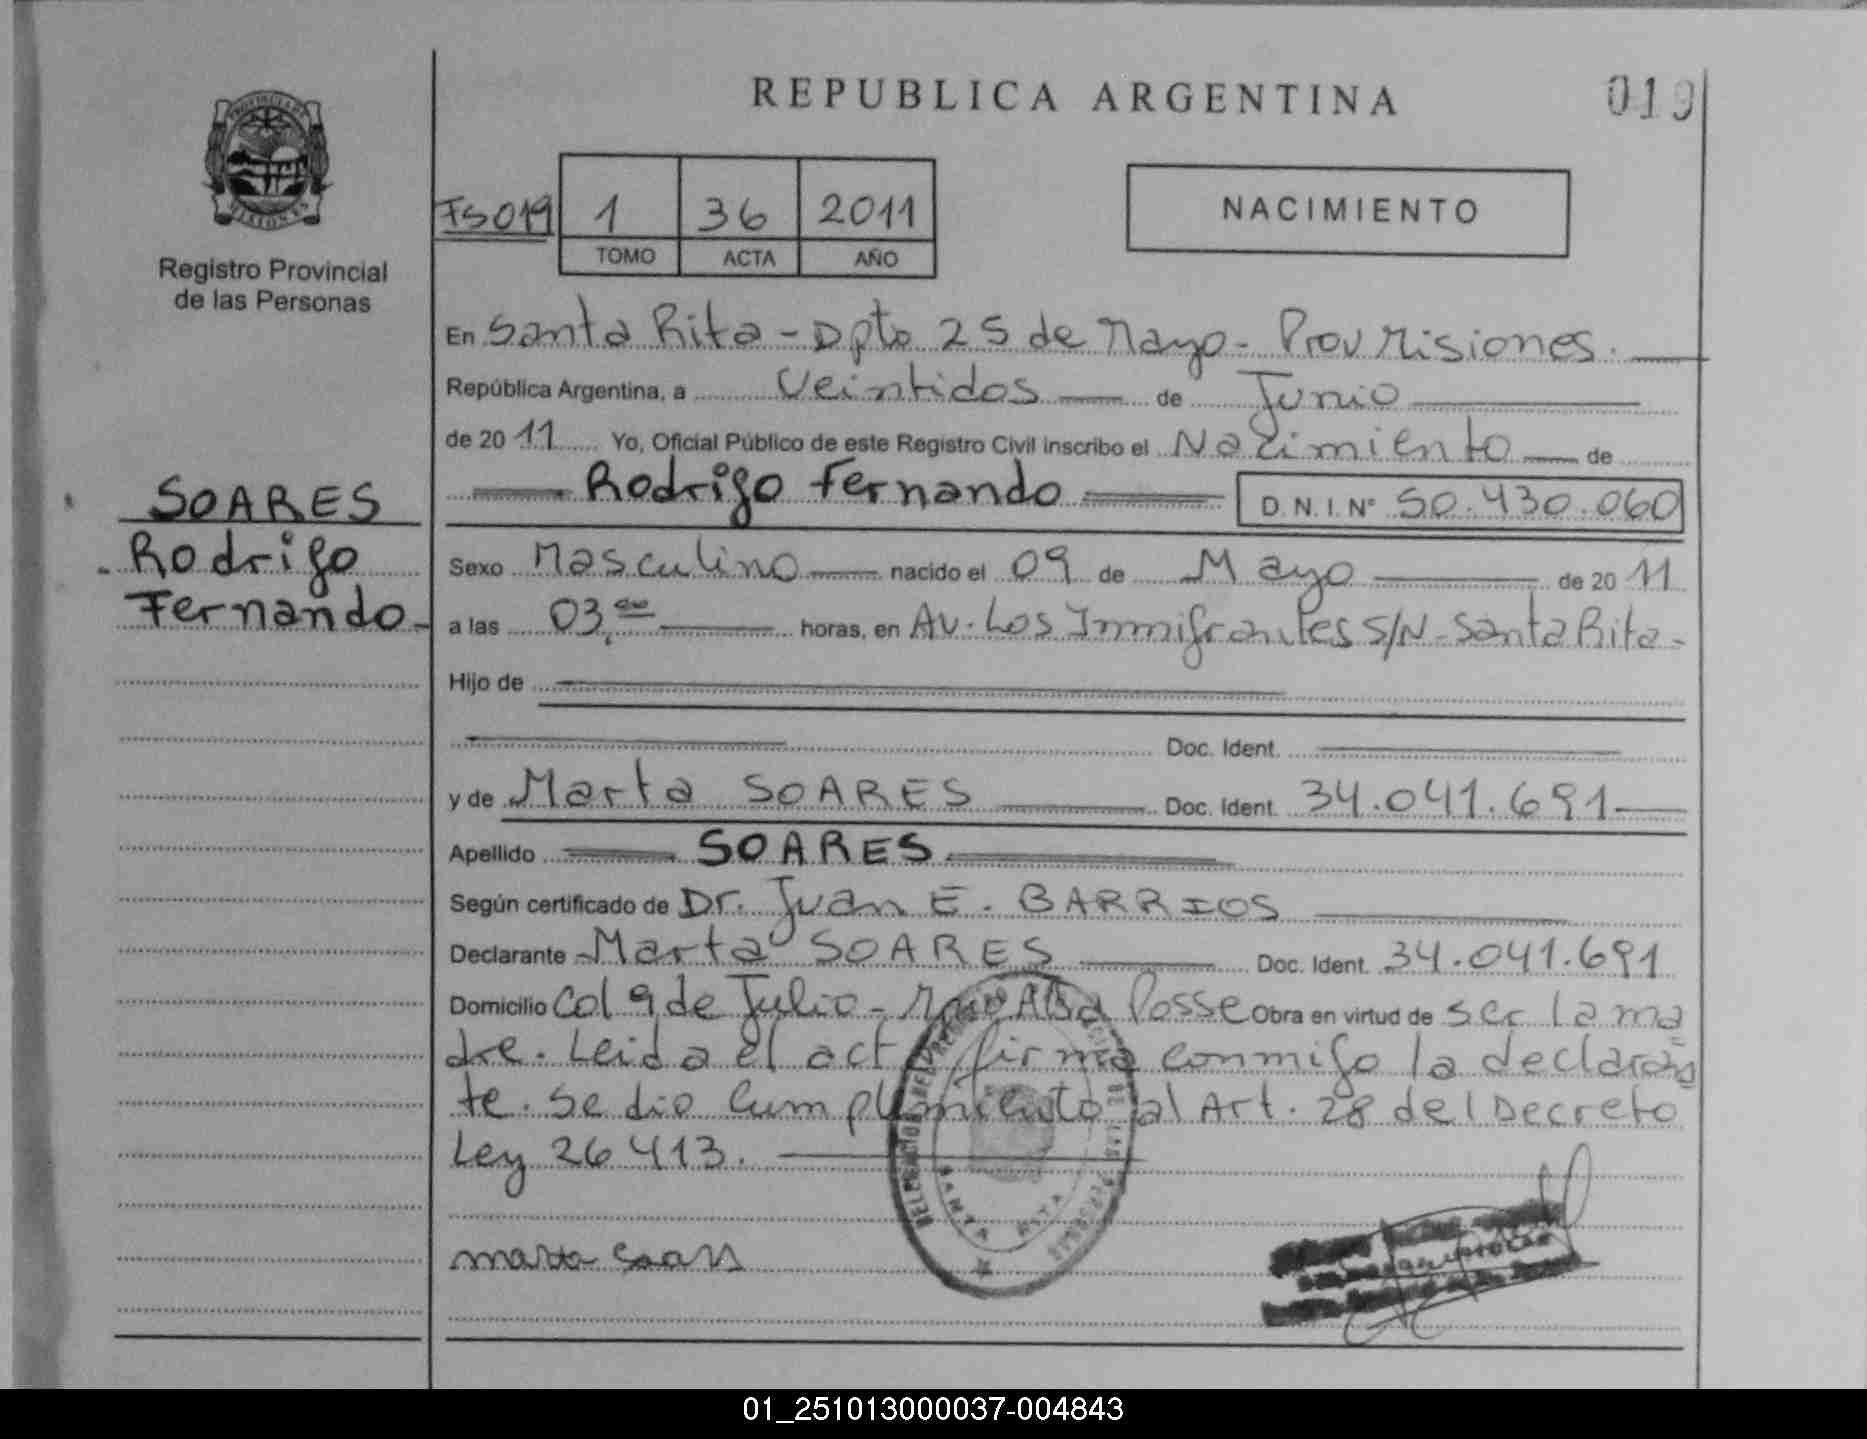 REPUBLICA ARGENTINA
019
PROVINCIA DE MISIONES
Registro Provincial
de las Personas
FS019
1 36 2011
TOMO ACTA AÑO
NACIMIENTO
SOARES
Rodrigo
Fernando
En Santa Rita - Dpto 25 de Mayo - Prov Misiones.
República Argentina, a Veintidos de Junio
de 2011 Yo, Oficial Público de este Registro Civil inscribo el Nacimiento de
Rodrigo Fernando D.N.I. N° 50.430.060
Sexo Masculino nacido el 09 de Mayo de 2011
a las 03,00 horas, en Av. Los Inmigrantes S/N - Santa Rita -
Hijo de
Doc. Ident.
y de Marta SOARES Doc. Ident. 34.041.691
Apellido SOARES
Según certificado de Dr. Juan E. BARRIOS
Declarante Marta SOARES Doc. Ident. 34.041.691
Domicilio Col 9 de Julio - Alba Posse Obra en virtud de ser la ma
dre. Leida el act firma conmigo la declaran
te. Se dio Cumplimiento al Art. 28 del Decreto
Ley 26413.
SANTA RITA
marta
01_251013000037-004843